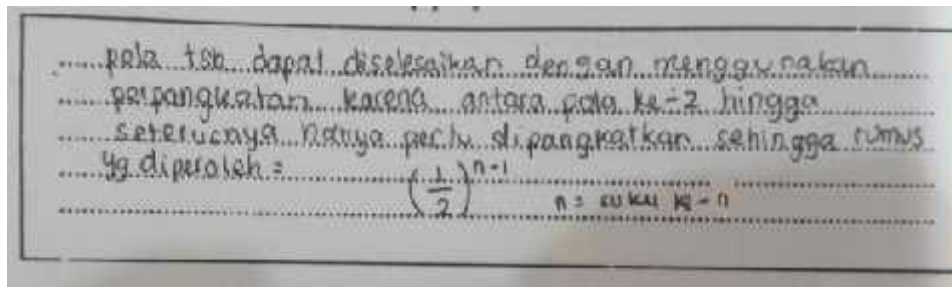 pola tsb dapat diselesaikan dengan menggunakan
perpangkatan karena antara pola ke-2 hingga
seterusnya hanya perlu dipangkatkan sehingga rumus
yg diperoleh =
(1/2)^n-1 n = suku ke-n